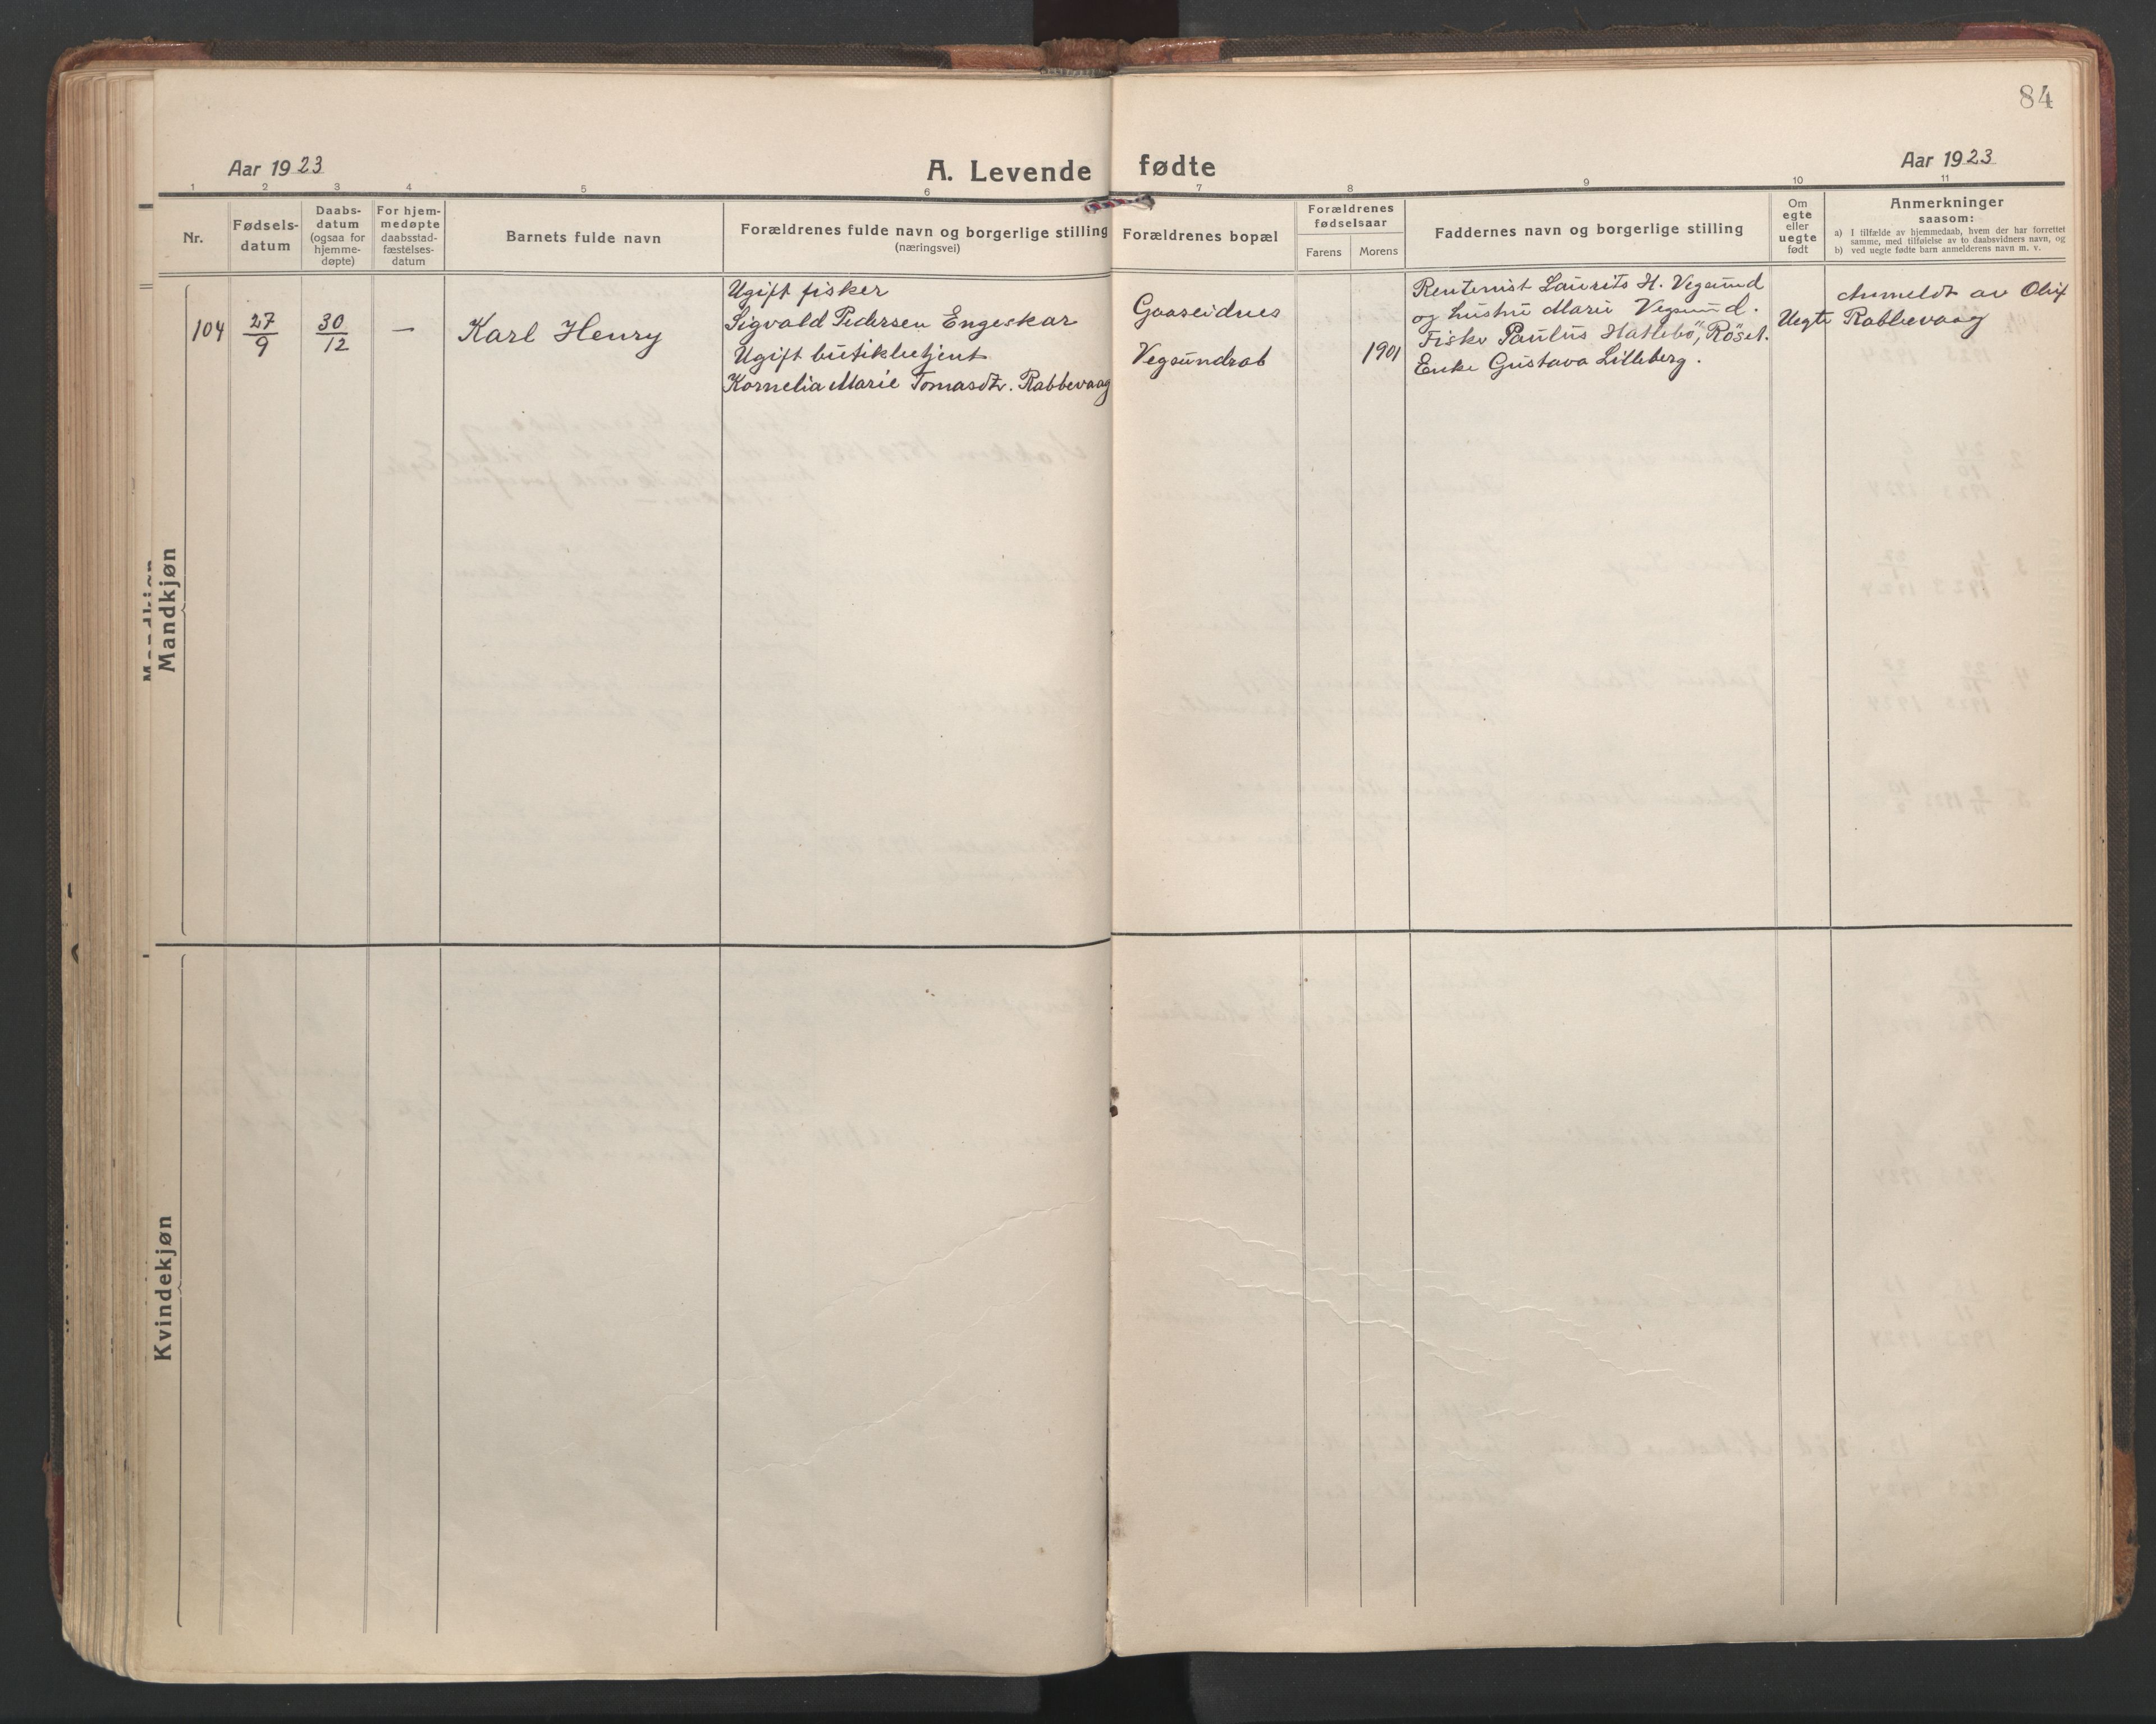 84
Aar 1923
A. Levende fødte
Aar 1923
1 2 3 4 5 6 7 8 9 10 11
Nr.
Fødsels-
datum
Daabs-
datum
(ogsaa for
hjemme-
døpte)
For hjem-
medøpte
daabsstad-
fæstelses-
datum
Barnets fulde navn
Forældrenes fulde navn og borgerlige stilling
(næringsvei)
Forældrenes bopæl
Forældrenes
fødselsaar
Farens Morens
Faddernes navn og borgerlige stilling
Om
egte
eller
uegte
født
Anmerkninger
saasom:
a) I tilfælde av hjemmedaab, hvem der har forrettet
samme, med tilføielse av to daabsvidners navn, og
b) ved uegte fødte barn anmelderens navn m. v.
Mandkjøn
104
27/9
30/12
—
Karl Henry
Ugift fisker
Sigvald Pedersen Engeskar
Ugift butikbetjent
Kornelia Marie Tomasdtr. Rabbevaag
Gaaseidnes
Vegsundrab
1901
Rentenist Laurits H. Vegsund
og hustru Marie Vegsund.
Fisker Paulus Hatlebö, Röset.
Enke Gustava Lilleberg.
Uegte
Anmeldt av Oluf
Rabbevaag
Kvindekjøn